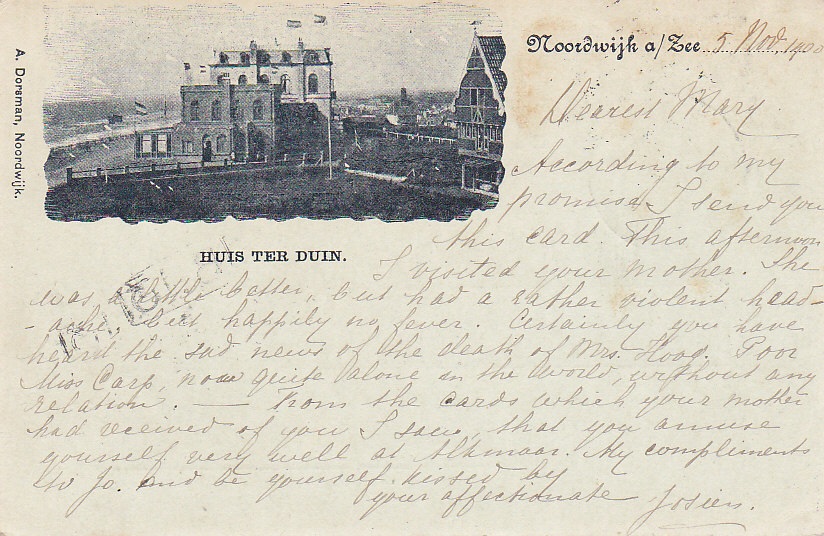 A. Dorsman, Noordwijk.
Noordwijk a/Zee 5 Nov. 1900
HUIS TER DUIN.
Dearest Mary
According to my
promise I send you
this card. This afternoon
I visited your mother. She
was a little better, but had a rather violent head-
- ache but happily no fever. Certainly you have
heard the sad news of the death of Mrs. Hoog. Poor
Miss Carp, now quite alone in the world, without any
relation. — From the cards which your mother
had received of you I saw, that you amuse
yourself very well at Alkmaar. My compliments
to Jo. and be yourself kissed by
your affectionate Josien.